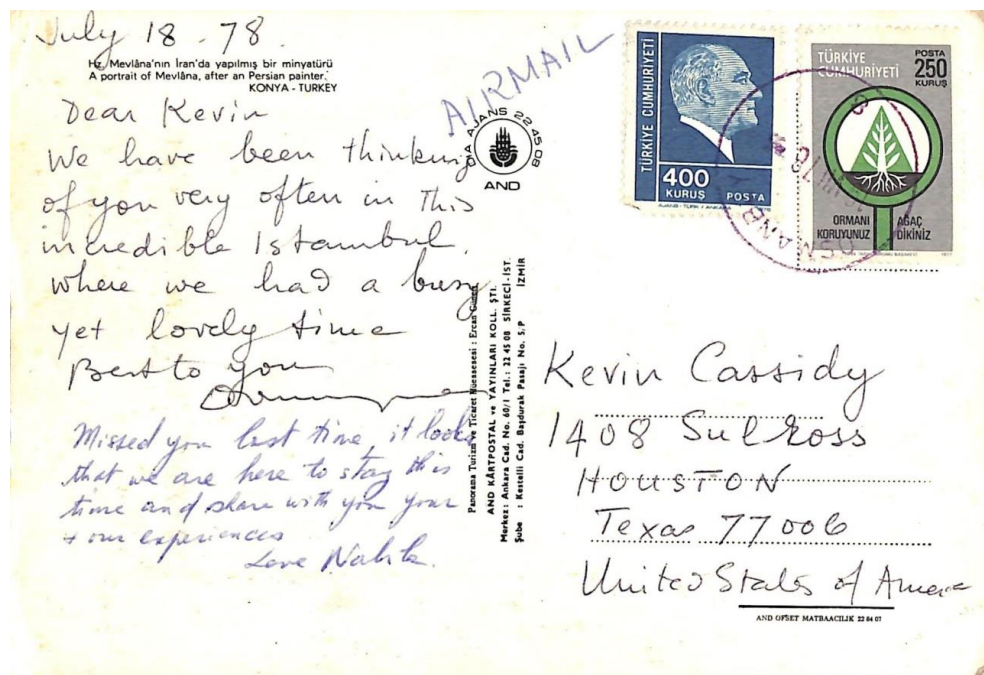 July 18 - 78.
Hz. Mevlâna'nın İran'da yapılmış bir minyatürü
A portrait of Mevlâna, after an Persian painter.
KONYA - TURKEY
AIRMAIL
Dear Kevin
We have been thinking
of you very often in this
incredible Istambul,
where we had a busy
yet lovely time
Best to you
Missed you last time, it looks
that we are here to stay this
time and share with you your
+ our experiences
Love
AJANS 22 45 08
AND
Panorama Turizm ve Ticaret Müessesesi : Ercan
AND KARTPOSTAL ve YAYINLARI KOLL. ŞTİ.
Merkez: Ankara Cad. No. 60/1 Tel.: 22 45 08 SİRKECİ-İST.
Şube : Kestelli Cad. Başdurak Pasajı No. 5/P İZMİR
TÜRKİYE CUMHURİYETİ
400
KURUŞ POSTA
AJANS - TÜRK / ANKARA
TÜRKİYE
CUMHURİYETİ
POSTA
250
KURUŞ
ORMANI
KORUYUNUZ
AĞAÇ
DİKİNİZ
1977
Kevin Cassidy
1408 Sul Ross
HOUSTON
Texas 77006
United States of America
AND OFSET MATBAACILIK 22 64 07